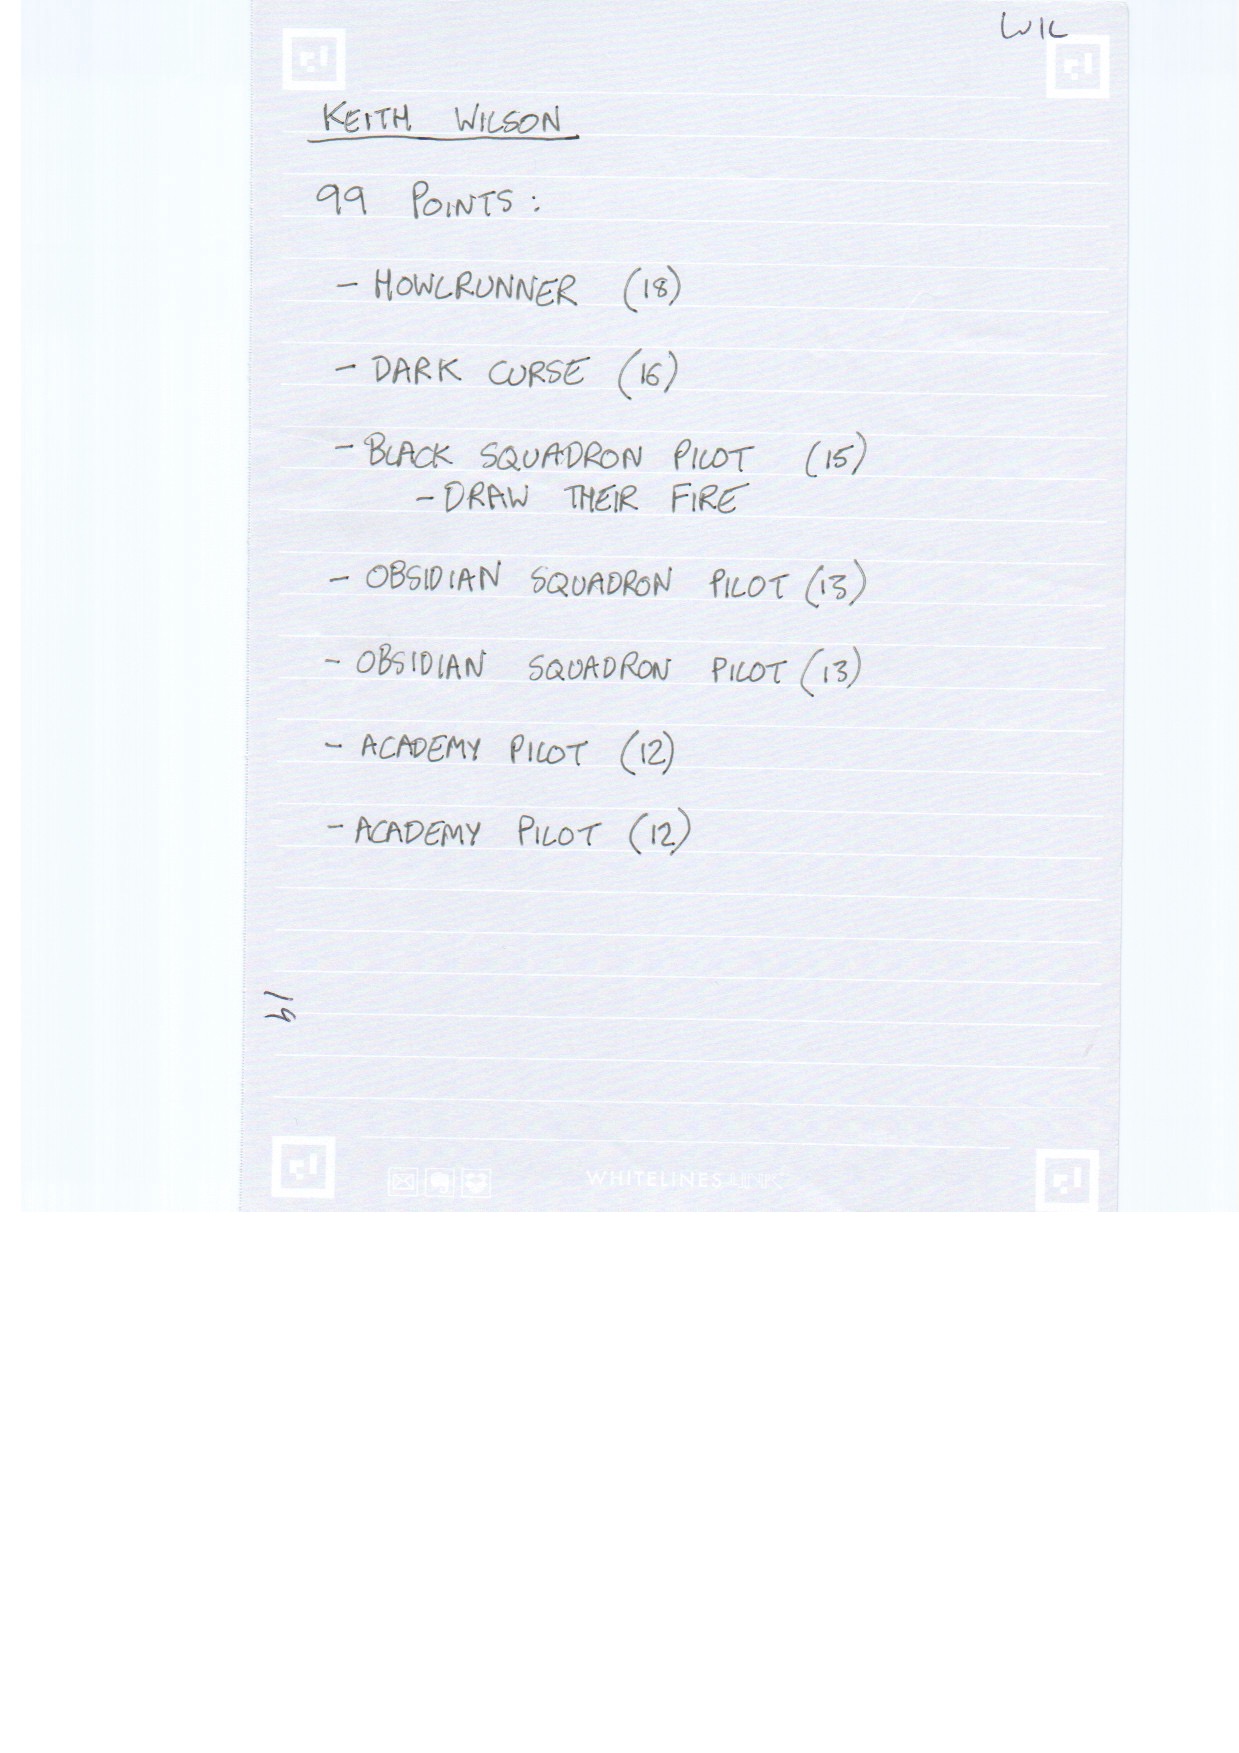 WIL
KEITH WILSON
99 POINTS:
- HOWLRUNNER (18)
- DARK CURSE (16)
- BLACK SQUADRON PILOT (15)
- DRAW THEIR FIRE
- OBSIDIAN SQUADRON PILOT (13)
- OBSIDIAN SQUADRON PILOT (13)
- ACADEMY PILOT (12)
- ACADEMY PILOT (12)
19
WHITELINES LINK